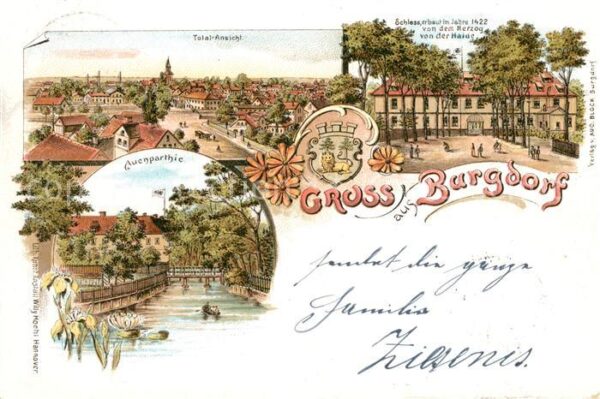 Total-Ansicht.
Schloss, erbaut im Jahre 1422
von dem Herzog
von der Haide
Auenparthie.
GRUSS
aus
Burgdorf
Verlag v. AUG. BLOCK Burgdorf
sendet die ganze
Familie
Ziesenis.
Hannover.